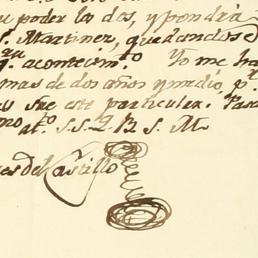 su poder las dos, y pondrá
S. Martinez, quedandose
q.e acontecim.to Yo me ha
mas de dos años y medio, p.r
este particular. Pasa
mo at.o S. S. Q. B. S. M.
es del Castillo